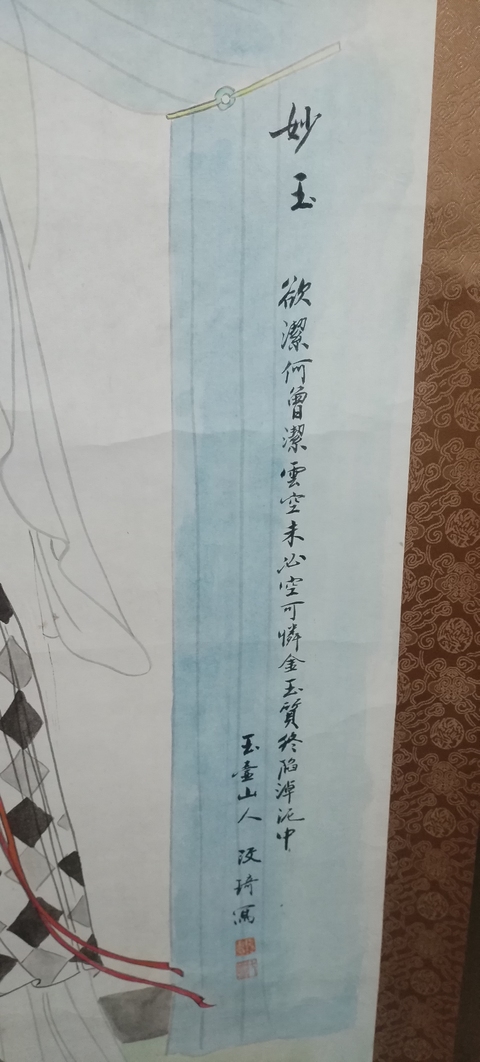 妙玉
欲潔何曾潔雲空未必空可憐金玉質終陷淖泥中
玉壺山人改琦寫